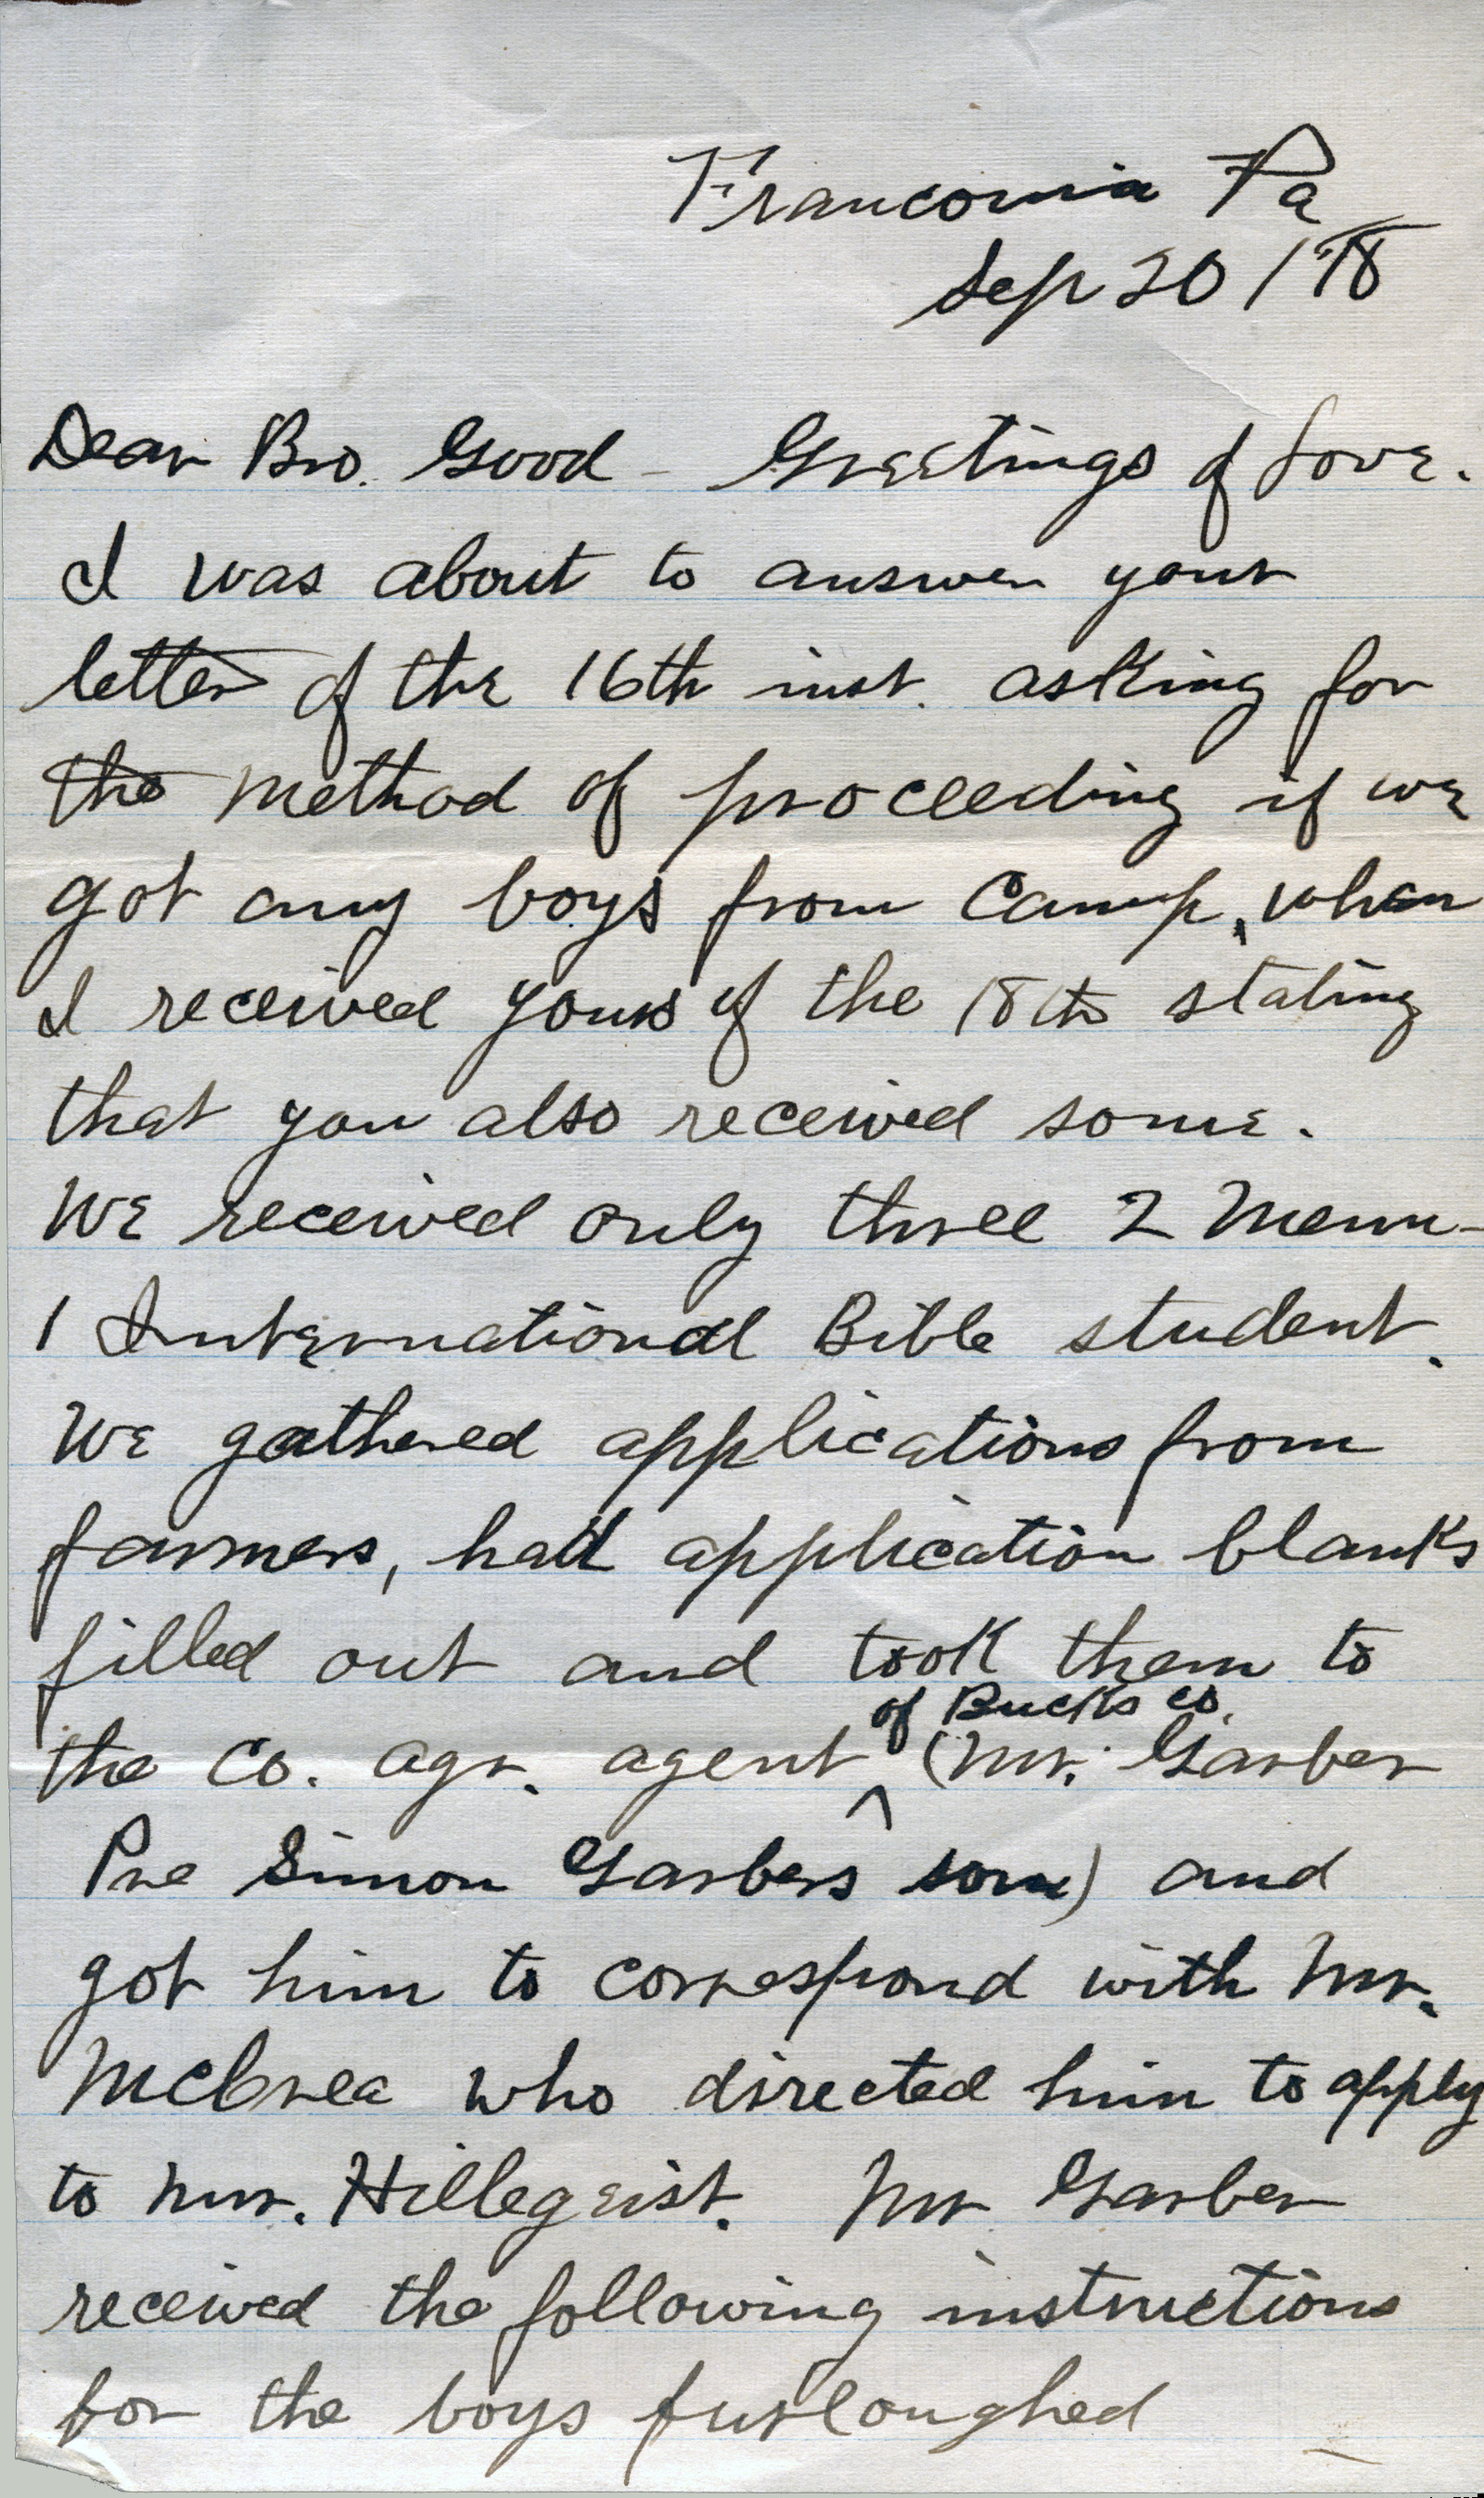 Franconia Pa
Sep 20 / 18
Dear Bro. Good - Greetings of Love.
I was about to answer your
letter of the 16th inst. asking for
the method of proceeding if we
got any boys from camp, when
I received yours of the 18th stating
that you also received some.
We received only three 2 Menn-
1 International Bible student.
We gathered applications from
farmers, had application blanks
filled out and took them to
of Bucks co.
the Co. agr. agent ^ (Mr. Garber
Pre Simon Garbers son) and
got him to correspond with Mr.
McCrea who directed him to apply
to Mr. Hillegeist. Mr Garber
received the following instructions
for the boys furloughed